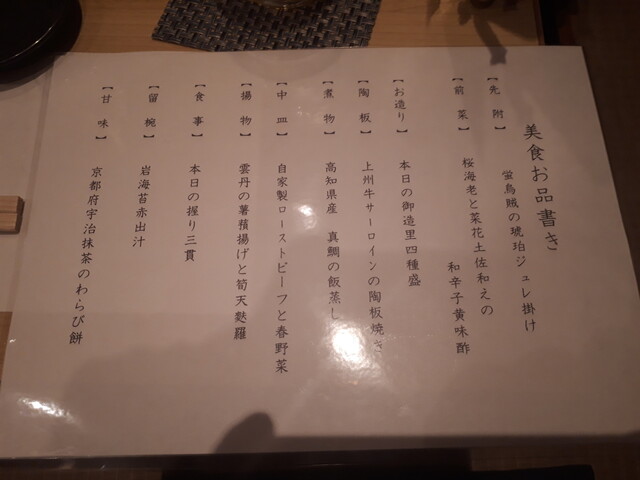 美食お品書き
【先附】 蛍烏賊の琥珀ジュレ掛け
【前菜】 桜海老と菜花土佐和えの
和辛子黄味酢
【お造り】 本日の御造里四種盛
【陶板】 上州牛サーロインの陶板焼き
【煮物】 高知県産 真鯛の飯蒸し
【中皿】 自家製ローストビーフと春野菜
【揚物】 雲丹の薯蕷揚げと筍天麩羅
【食事】 本日の握り三貫
【留椀】 岩海苔赤出汁
【甘味】 京都府宇治抹茶のわらび餅